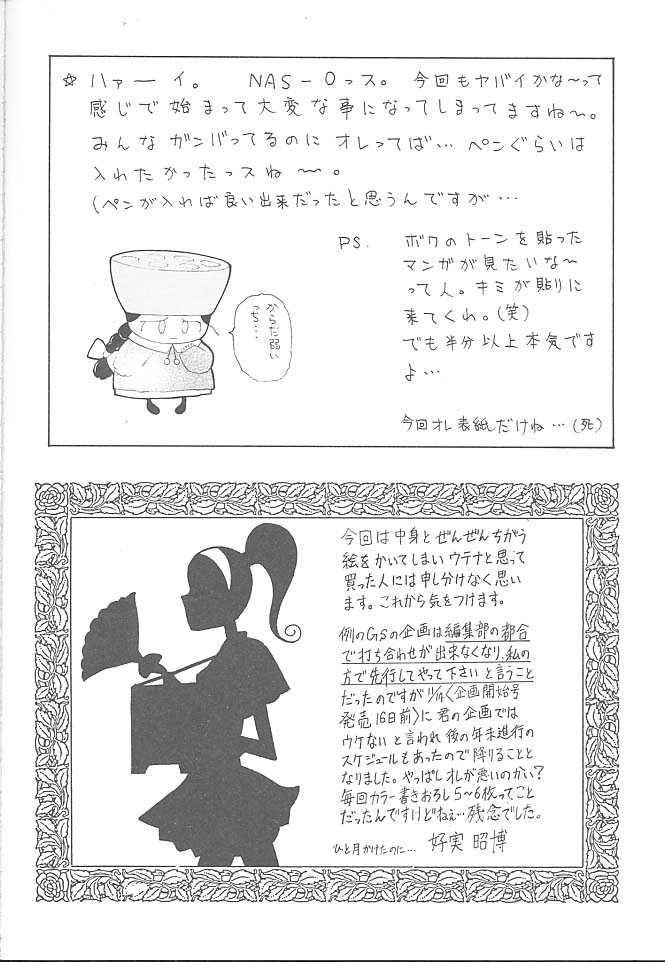 ☆ハァーイ。 NAS-Oっス。今回もヤバイかな〜って
感じで始まって大変な事になってしまってますね〜。
みんなガンバってるのにオレってば… ペンぐらいは
入れたかったっスね〜。
(ペンが入れば良い出来だったと思うんですが…
PS. ボクのトーンを貼った
マンガが見たいな〜
って人。キミが貼りに
来てくれ。(笑)
でも半分以上本気です
よ…
からだ弱い
っち…
今回オレ表紙だけね…(死)
今回は中身とぜんぜんちがう
絵をかいてしまいウテナと思って
買った人には申し分けなく思い
ます。これから気をつけます。
例のGSの企画は編集部の都合
で打ち合わせが出来なくなり、私の
方で先行してやって下さいと言うこと
だったのですが 11/14〈企画開始号
発売16日前〉に君の企画では
ウケないと言われ後の年末進行の
スケジュールもあったので降りることと
なりました。やっぱしオレが悪いのかい?
毎回カラー書きおろし5〜6枚ってこと
だったんですけどねぇ…残念でした。
ひと月かけたのに… 好実昭博